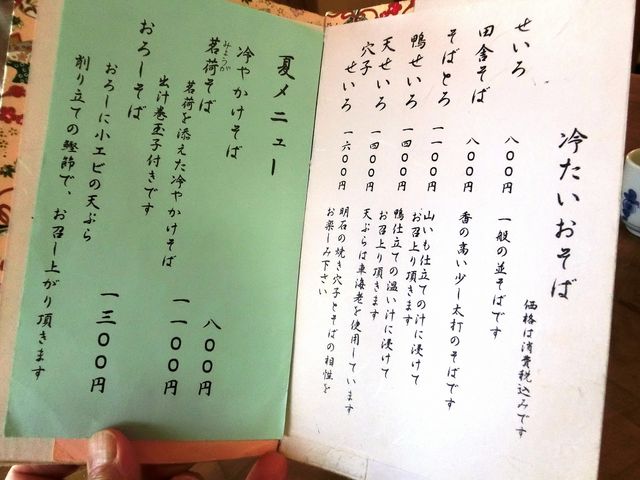 冷たいおそば
価格は消費税込みです
せいろ 八〇〇円 一般の並そばです
田舎そば 八〇〇円 香の高い少し太打のそばです
そばとろ 一一〇〇円 山いも仕立ての汁に浸けて
お召上り頂きます
鴨せいろ 一四〇〇円 鴨仕立ての温い汁に浸けて
お召上り頂きます
天せいろ 一四〇〇円 天ぷらは車海老を使用しています
穴子せいろ 一六〇〇円 明石の焼き穴子とそばの相性を
お楽しみ下さい
夏メニュー
冷やかけそば 八〇〇円
茗荷そば 一一〇〇円
みょうが
茗荷を添えた冷やかけそば
出汁巻玉子付きです
おろしそば 一三〇〇円
おろしに小エビの天ぷら
削り立ての鰹節で、お召し上がり頂きます